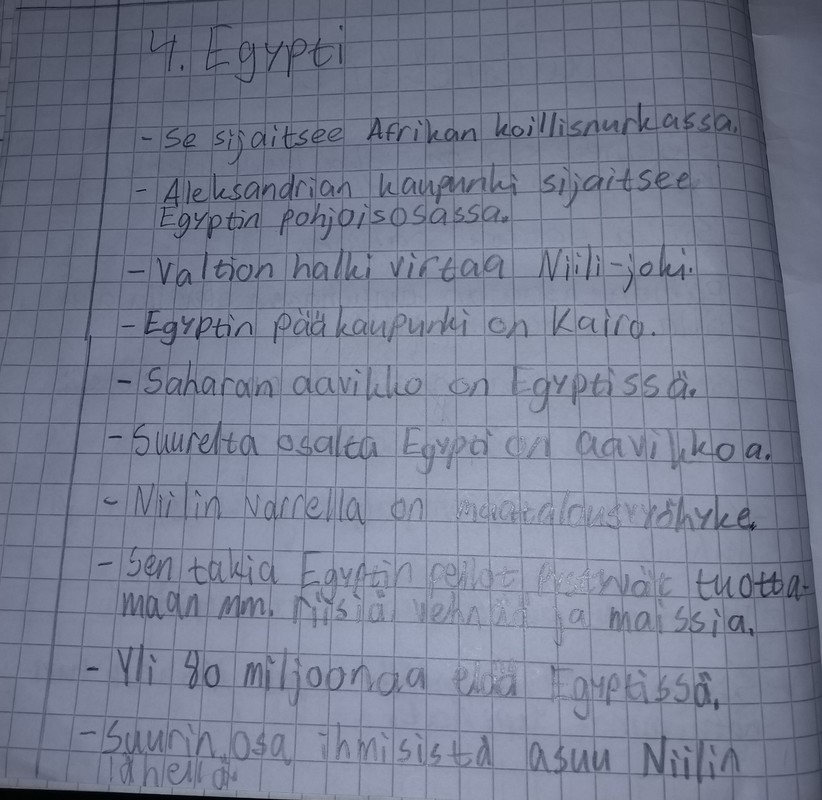 4. Egypti
- Se sijaitsee Afrikan koillisnurkassa.
- Aleksandrian kaupunki sijaitsee
Egyptin pohjoisosassa.
- Valtion halki virtaa Niili-joki.
- Egyptin pääkaupunki on Kairo.
- Saharan aavikko on Egyptissä.
- Suurelta osalta Egypti on aavikkoa.
- Niilin varrella on maatalousvyöhyke.
- Sen takia Egyptin pellot pystyvät tuotta-
maan mm. riisiä, vehnää ja maissia.
- Yli 80 miljoonaa elää Egyptissä.
- Suurin osa ihmisistä asuu Niilin
lähellä.